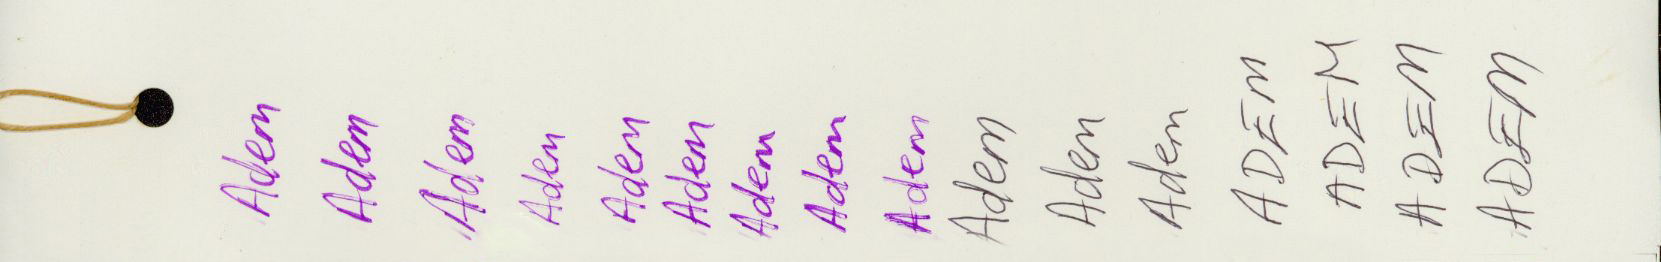 Adem
Adem
Adem
Adem
Adem
Adem
Adem
Adem
Adem
Adem
Adem
Adem
ADEM
ADEM
ADEM
ADEM